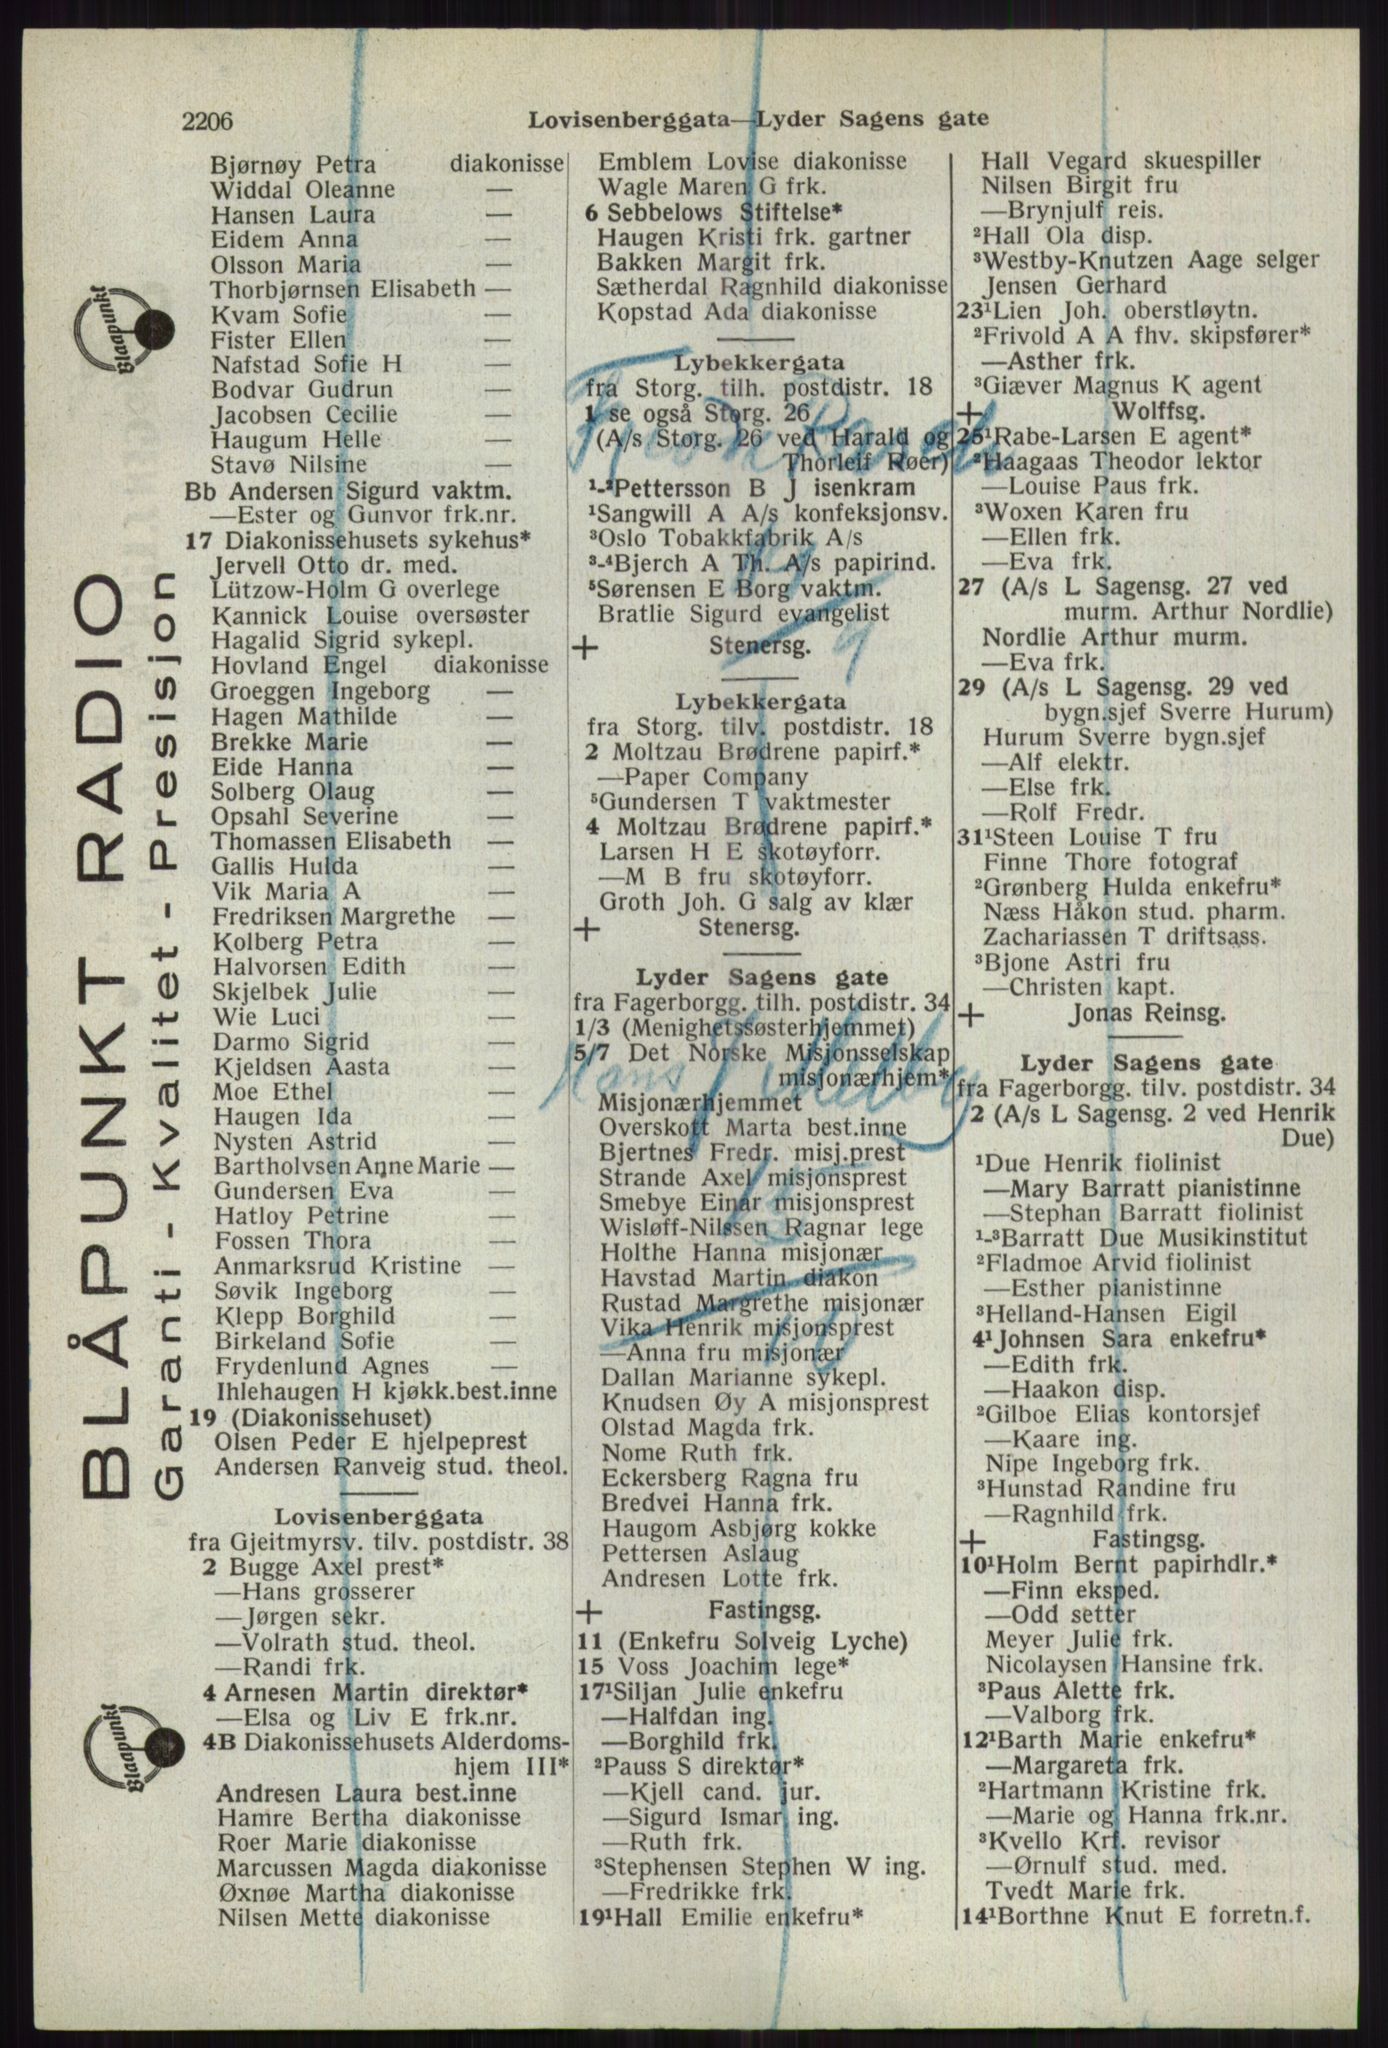 2206
Lovisenberggata—Lyder Sagens gate
BLÅPUNKT RADIO
Garanti - Kvalitet - Presisjon
Blaapunkt
Blaapunkt
Bjørnøy Petra diakonisse
Widdal Oleanne —
Hansen Laura —
Eidem Anna —
Olsson Maria —
Thorbjørnsen Elisabeth —
Kvam Sofie —
Fister Ellen —
Nafstad Sofie H —
Bodvar Gudrun —
Jacobsen Cecilie —
Haugum Helle —
Stavø Nilsine —
Bb Andersen Sigurd vaktm.
—Ester og Gunvor frk.nr.
17 Diakonissehusets sykehus*
Jervell Otto dr. med.
Lützow-Holm G overlege
Kannick Louise oversøster
Hagalid Sigrid sykepl.
Hovland Engel diakonisse
Groeggen Ingeborg —
Hagen Mathilde —
Brekke Marie —
Eide Hanna —
Solberg Olaug —
Opsahl Severine —
Thomassen Elisabeth —
Gallis Hulda —
Vik Maria A —
Fredriksen Margrethe —
Kolberg Petra —
Halvorsen Edith —
Skjelbek Julie —
Wie Luci —
Darmo Sigrid —
Kjeldsen Aasta —
Moe Ethel —
Haugen Ida —
Nysten Astrid —
Bartholvsen Anne Marie —
Gundersen Eva —
Hatloy Petrine —
Fossen Thora —
Anmarksrud Kristine —
Søvik Ingeborg —
Klepp Borghild —
Birkeland Sofie —
Frydenlund Agnes —
Ihlehaugen H kjøkk.best.inne
19 (Diakonissehuset)
Olsen Peder E hjelpeprest
Andersen Ranveig stud. theol.
Lovisenberggata
fra Gjeitmyrsv. tilv. postdistr. 38
2 Bugge Axel prest*
—Hans grosserer
—Jørgen sekr.
—Volrath stud. theol.
—Randi frk.
4 Arnesen Martin direktør*
—Elsa og Liv E frk.nr.
4B Diakonissehusets Alderdoms-
hjem III*
Andresen Laura best.inne
Hamre Bertha diakonisse
Roer Marie diakonisse
Marcussen Magda diakonisse
Øxnøe Martha diakonisse
Nilsen Mette diakonisse
Emblem Lovise diakonisse
Wagle Maren G frk.
6 Sebbelows Stiftelse*
Haugen Kristi frk. gartner
Bakken Margit frk.
Sætherdal Ragnhild diakonisse
Kopstad Ada diakonisse
Lybekkergata
fra Storg. tilh. postdistr. 18
1 se også Storg. 26
(A/s Storg. 26 ved Harald og
Thorleif Røer)
¹-²Pettersson B J isenkram
¹Sangwill A A/s konfeksjonsv.
³Oslo Tobakkfabrik A/s
³-⁴Bjerch A Th. A/s papirind.
⁵Sørensen E Borg vaktm.
Bratlie Sigurd evangelist
+ Stenersg.
Lybekkergata
fra Storg. tilv. postdistr. 18
2 Moltzau Brødrene papirf.*
—Paper Company
⁵Gundersen T vaktmester
4 Moltzau Brødrene papirf.*
Larsen H E skotøyforr.
—M B fru skotøyforr.
Groth Joh. G salg av klær
+ Stenersg.
Lyder Sagens gate
fra Fagerborgg. tilh. postdistr. 34
1/3 (Menighetssøsterhjemmet)
5/7 Det Norske Misjonsselskap
misjonærhjem*
Misjonærhjemmet
Overskott Marta best.inne
Bjertnes Fredr. misj.prest
Strande Axel misjonsprest
Smebye Einar misjonsprest
Wisløff-Nilssen Ragnar lege
Holthe Hanna misjonær
Havstad Martin diakon
Rustad Margrethe misjonær
Vika Henrik misjonsprest
—Anna fru misjonær
Dallan Marianne sykepl.
Knudsen Øy A misjonsprest
Olstad Magda frk.
Nome Ruth frk.
Eckersberg Ragna fru
Bredvei Hanna frk.
Haugom Asbjørg kokke
Pettersen Aslaug
Andresen Lotte frk.
+ Fastingsg.
11 (Enkefru Solveig Lyche)
15 Voss Joachim lege*
17¹Siljan Julie enkefru
—Halfdan ing.
—Borghild frk.
²Pauss S direktør*
—Kjell cand. jur.
—Sigurd Ismar ing.
—Ruth frk.
³Stephensen Stephen W ing.
—Fredrikke frk.
19¹Hall Emilie enkefru*
Hall Vegard skuespiller
Nilsen Birgit fru
—Brynjulf reis.
²Hall Ola disp.
³Westby-Knutzen Aage selger
Jensen Gerhard
23¹Lien Joh. oberstløytn.
²Frivold A A fhv. skipsfører*
—Asther frk.
³Giæver Magnus K agent
+ Wolffsg.
25¹Rabe-Larsen E agent*
²Haagaas Theodor lektor
—Louise Paus frk.
³Woxen Karen fru
—Ellen frk.
—Eva frk.
27 (A/s L Sagensg. 27 ved
murm. Arthur Nordlie)
Nordlie Arthur murm.
—Eva frk.
29 (A/s L Sagensg. 29 ved
bygn.sjef Sverre Hurum)
Hurum Sverre bygn.sjef
—Alf elektr.
—Else frk.
—Rolf Fredr.
31¹Steen Louise T fru
Finne Thore fotograf
²Grønberg Hulda enkefru*
Næss Håkon stud. pharm.
Zachariassen T driftsass.
³Bjone Astri fru
—Christen kapt.
+ Jonas Reinsg.
Lyder Sagens gate
fra Fagerborgg. tilv. postdistr. 34
2 (A/s L Sagensg. 2 ved Henrik
Due)
¹Due Henrik fiolinist
—Mary Barratt pianistinne
—Stephan Barratt fiolinist
¹-³Barratt Due Musikinstitut
²Fladmoe Arvid fiolinist
—Esther pianistinne
³Helland-Hansen Eigil
4¹Johnsen Sara enkefru*
—Edith frk.
—Haakon disp.
²Gilboe Elias kontorsjef
—Kaare ing.
Nipe Ingeborg frk.
³Hunstad Randine fru
—Ragnhild frk.
+ Fastingsg.
10¹Holm Bernt papirhdlr.*
—Finn eksped.
—Odd setter
Meyer Julie frk.
Nicolaysen Hansine frk.
³Paus Alette frk.
—Valborg frk.
12¹Barth Marie enkefru*
—Margareta frk.
²Hartmann Kristine frk.
—Marie og Hanna frk.nr.
³Kvello Krf. revisor
—Ørnulf stud. med.
Tvedt Marie frk.
14¹Borthne Knut E forretn.f.